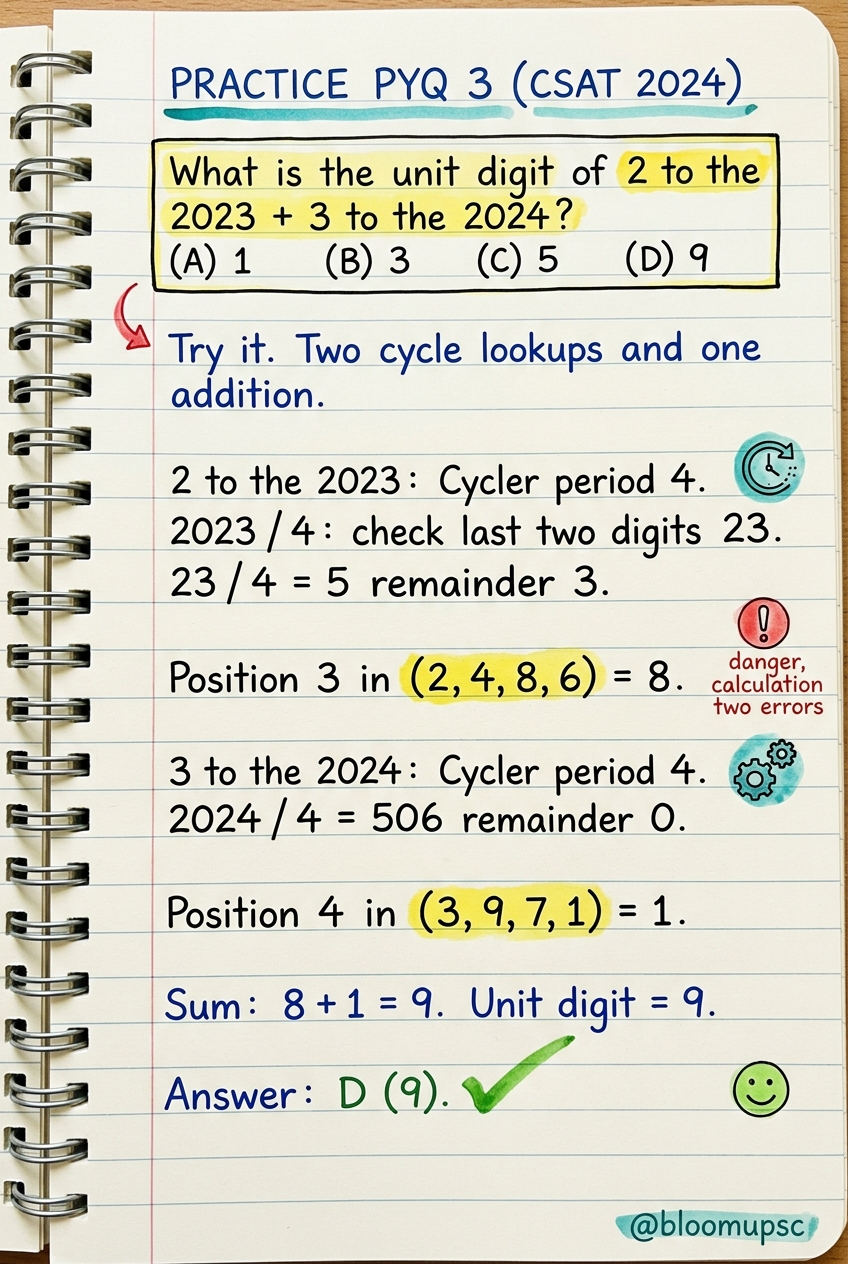 PRACTICE PYQ 3 (CSAT 2024)
What is the unit digit of 2 to the
2023 + 3 to the 2024?
(A) 1 (B) 3 (C) 5 (D) 9
Try it. Two cycle lookups and one
addition.
2 to the 2023: Cycler period 4.
2023 / 4: check last two digits 23.
23 / 4 = 5 remainder 3.
Position 3 in (2, 4, 8, 6) = 8.
danger,
calculation
two errors
3 to the 2024: Cycler period 4.
2024 / 4 = 506 remainder 0.
Position 4 in (3, 9, 7, 1) = 1.
Sum: 8 + 1 = 9. Unit digit = 9.
Answer: D (9).
@bloomupsc